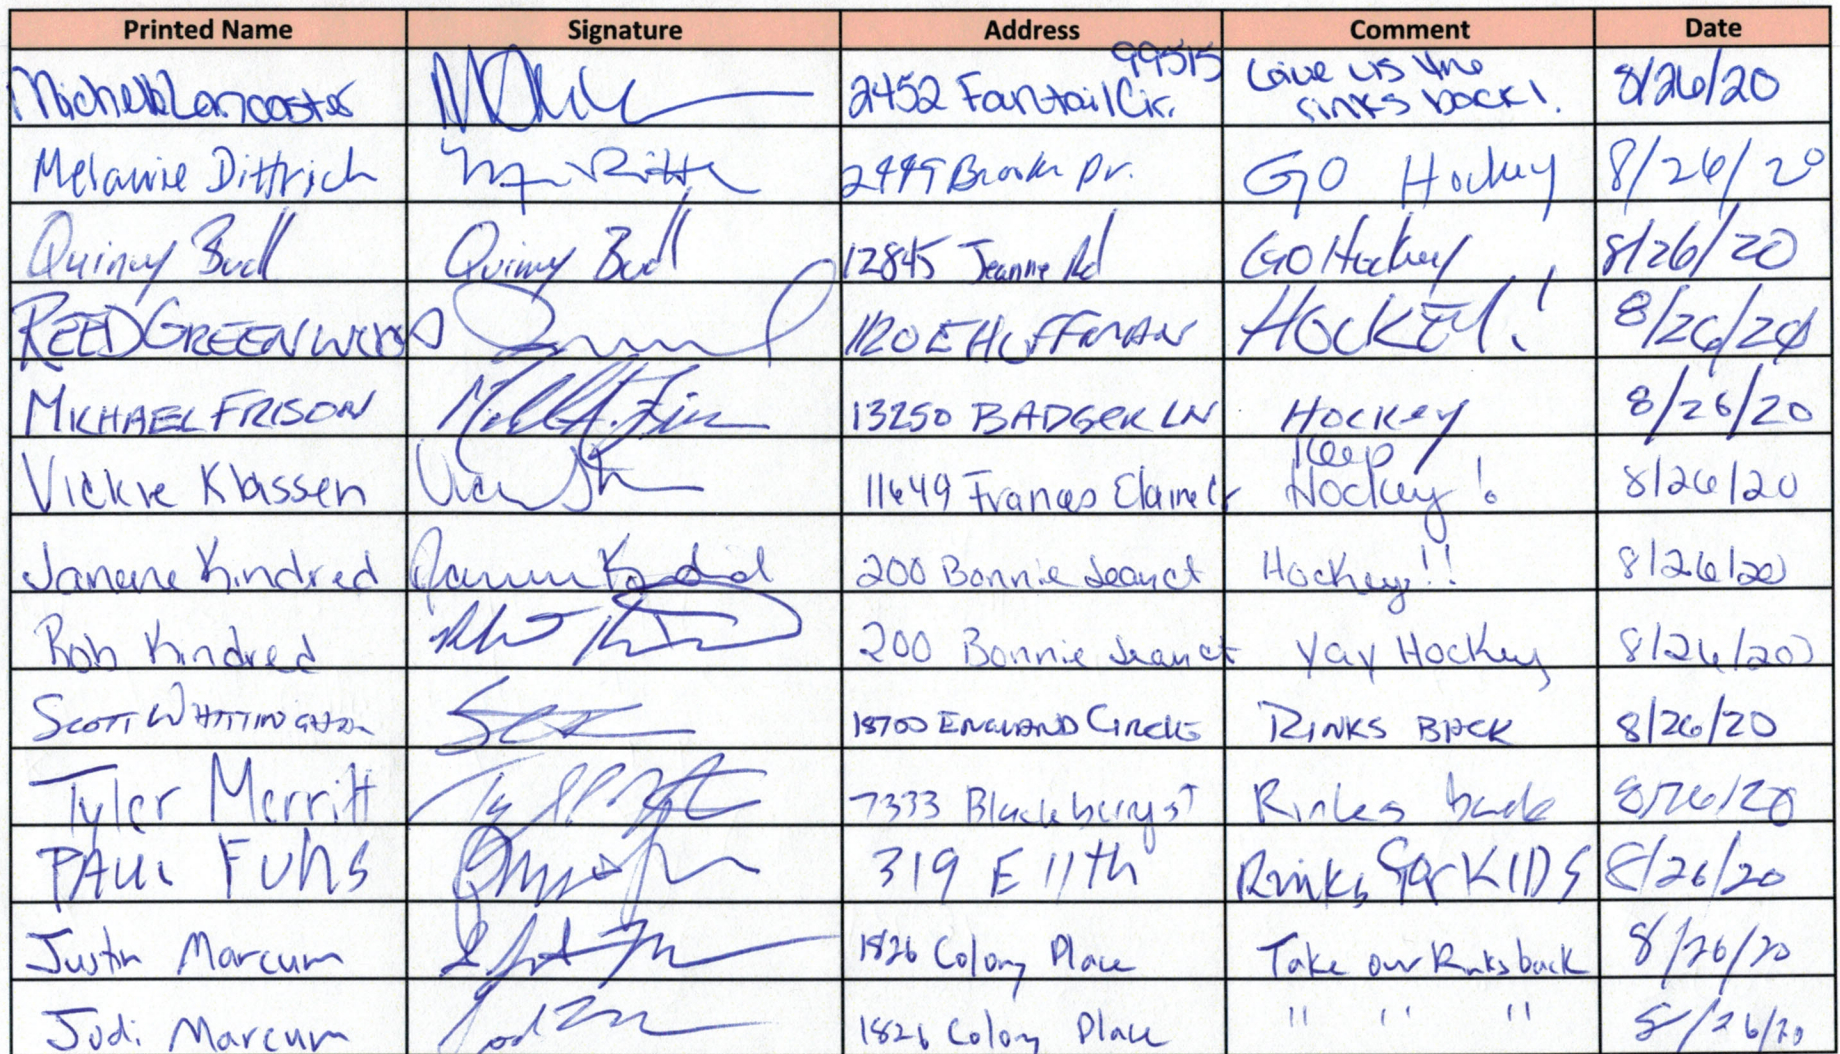 Printed Name Signature Address Comment Date
Michelle Lancaster 2452 Fantail Cir. 99515 Give us the rinks back! 8/26/20
Melanie Dittrich Dr. GO Hockey 8/26/20
Quincy Bud Quincy Bud 12845 Jeanne Rd GO Hockey 8/26/20
REED GREENWOOD 1120 E HUFFMAN HOCKEY! 8/26/20
MICHAEL FRISON 13250 BADGER LN HOCKEY 8/26/20
Vickie Klassen 11649 Frances Elaine Cr Keep Hockey! 8/26/20
Janene Kindred 200 Bonnie Jean ct Hockey!! 8/26/20
Rob Kindred 200 Bonnie Jean ct Yay Hockey 8/26/20
SCOTT WHITTINGHAM 18700 ENGLAND CIRCLE RINKS BACK 8/26/20
Tyler Merritt 7333 Blackberry st Rinks back 8/26/20
PAUL FUHS 319 E 11th Rinks for KIDS 8/26/20
Justin Marcum 1826 Colony Place Take our Rinks back 8/26/20
Jodi Marcum 1826 Colony Place " " " 8/26/20